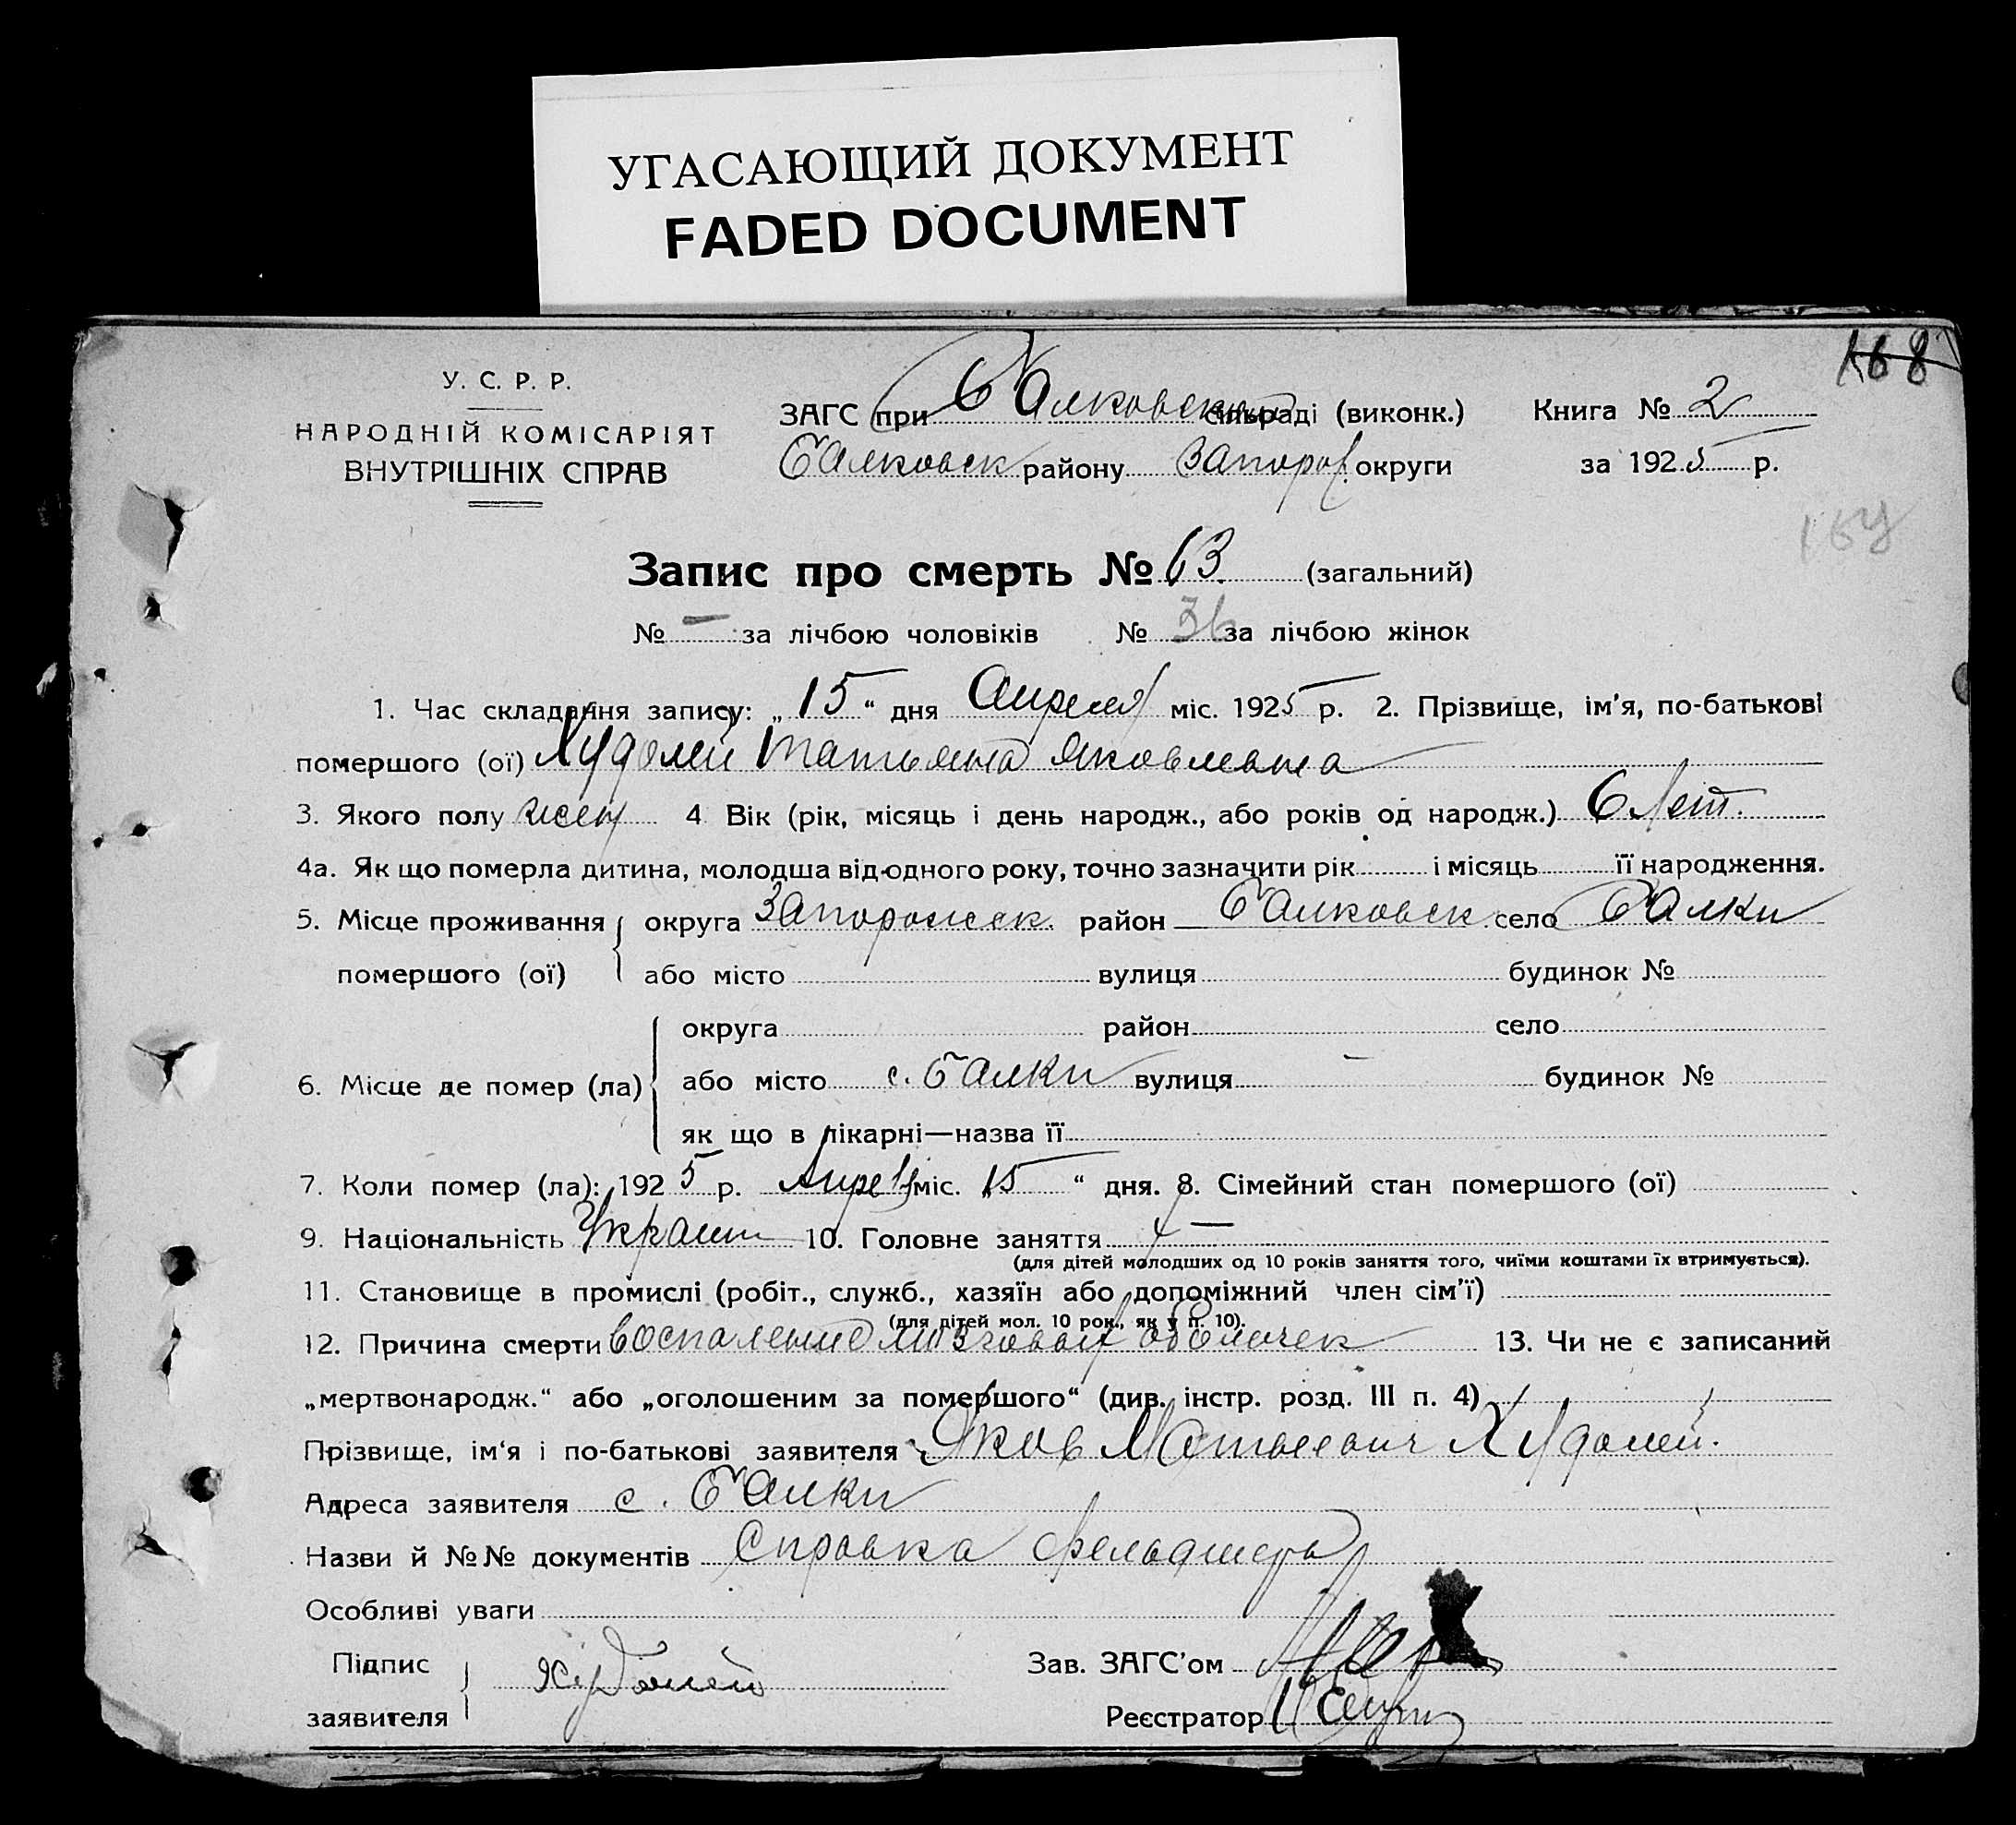 УГАСАЮЩИЙ ДОКУМЕНТ
FADED DOCUMENT
168
У. С. Р. Р.
НАРОДНІЙ КОМІСАРІЯТ
ВНУТРІШНІХ СПРАВ
ЗАГС при Балковском сільраді (виконк.) Книга № 2
Балковск району Запорож. округи за 1925 р.
Запис про смерть № 63 (загальний)
№ — за лічбою чоловіків № 36 за лічбою жінок
1. Час складання запису: „ 15 “ дня Апреля міс. 1925 р. 2. Прізвище, ім'я, по-батькові
помершого (ої) Худолей Татьяна Яковлевна
3. Якого полу жен 4 Вік (рік, місяць і день народж., або років од народж.) 6 лет.
4а. Як що померла дитина, молодша від одного року, точно зазначити рік і місяць її народження.
5. Місце проживання помершого (ої) округа Запорожск. район Балковск село Балки
або місто вулиця будинок №
6. Місце де помер (ла) округа район село
або місто с. Балки вулиця — будинок №
як що в лікарні—назва її
7. Коли помер (ла): 1925 р. Апреля міс. 15 “ дня. 8. Сімейний стан помершого (ої)
9. Національність Украин 10. Головне заняття —
(для дітей молодших од 10 років заняття того, чиїми коштами їх втримується).
11. Становище в промислі (робіт., служб., хазяїн або допоміжний член сім'ї)
(для дітей мол. 10 рок., як у п. 10).
12. Причина смерти воспаление мозговых оболочек 13. Чи не є записаний
„мертвонародж.“ або „оголошеним за помершого“ (див. інстр. розд. III п. 4)
Прізвище, ім'я і по-батькові заявителя Яков Матвеевич Худолей.
Адреса заявителя с. Балки
Назви й №№ документів Справка фельдшера
Особливі уваги
Підпис заявителя Худолей Зав. ЗАГС'ом
Реєстратор